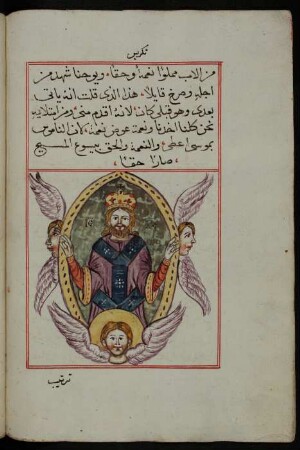 من الاب مملوا نعمة وحقا، ويوحنا شهد من
اجله وصرخ قايلا، هذا الذي قلت انه ياتي
بعدي وهو قبلي كان لانه اقدم مني ومن امتلايه
نحن كلنا اخذنا ونعمة عوض نعمة، لان الناموس
بموسى اعطي، والنعمة والحق بيسوع المسيح
صارا حقا،
ترتيب